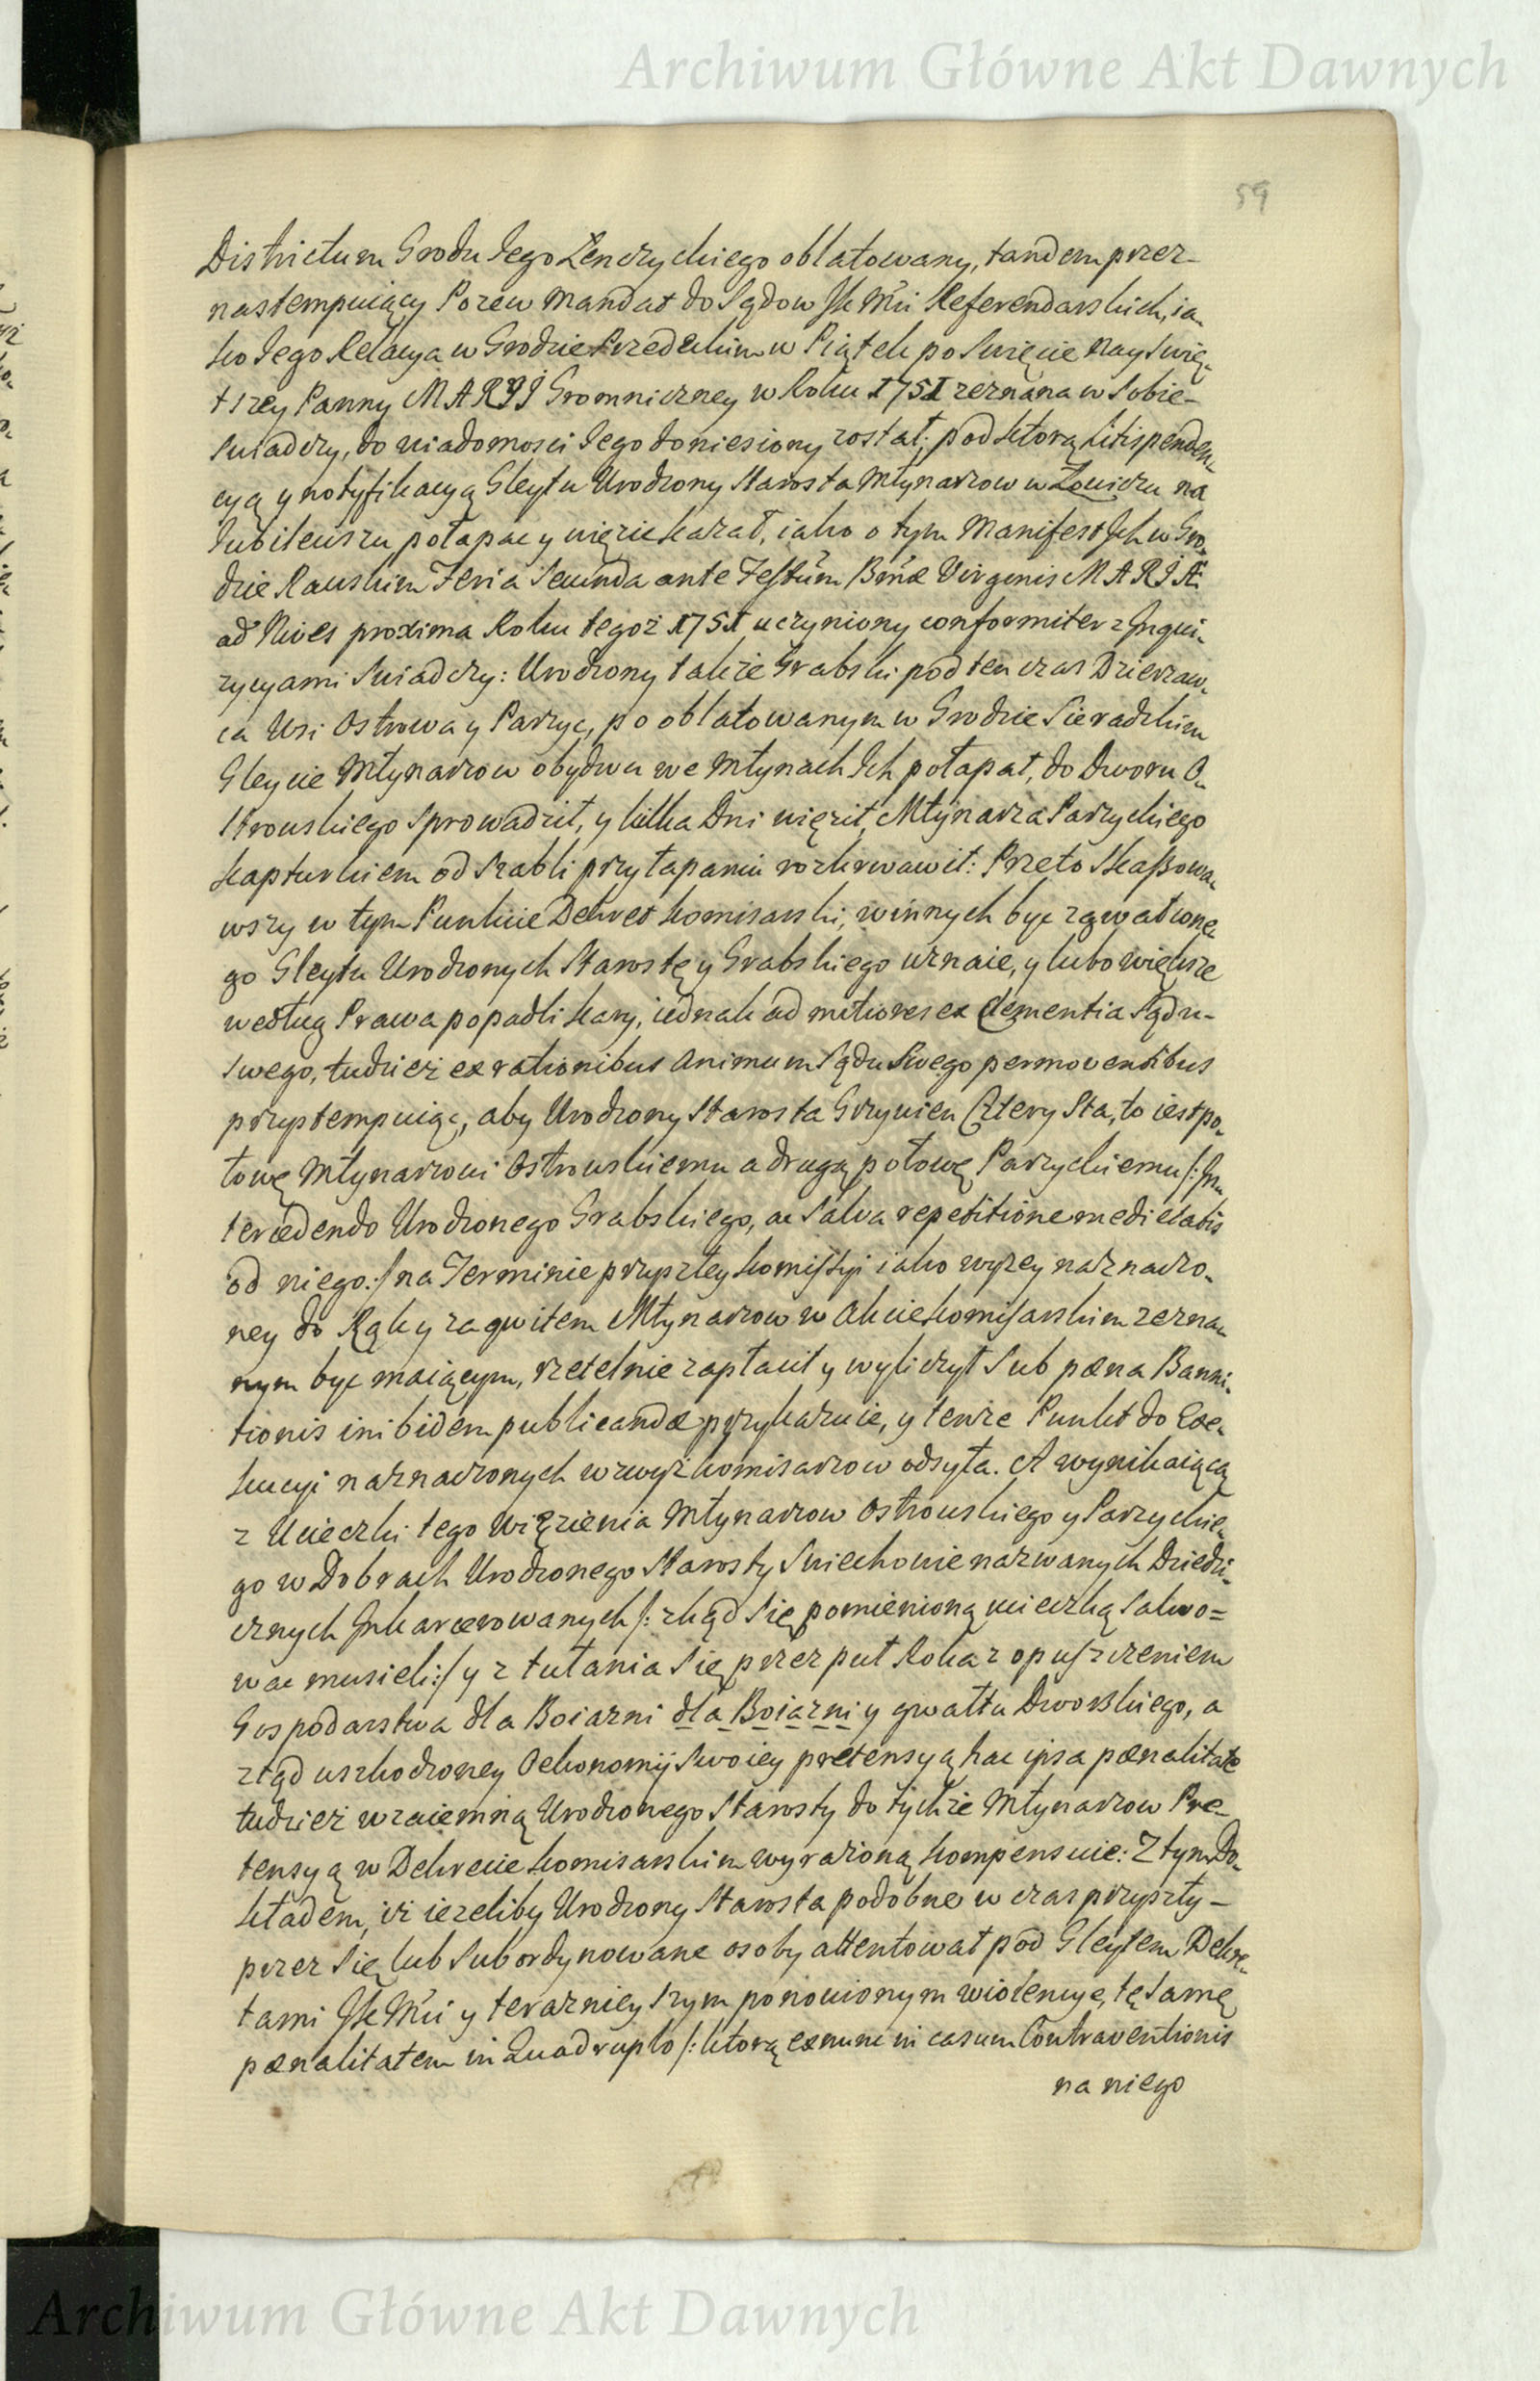 Archiwum Główne Akt Dawnych
59
Districtum Grodu Jego Łenczyckiego oblatowany, tandem przez-
nastempuiący Pozew Mandat do Sądow JK Mci Referendarskich, ia-
ko Jego Relacya w Grodzie Przedeckim w Piątek po Swięcie Nayswię-
tszey Panny MARYI Gromniczney w Roku 1751 zeznana w sobie-
swiadczy, do wiadomosci Jego doniesiony został; pod ktorą litispenden-
cyą y notyfikacyą Gleytu Urodzony Starosta Młynarzow w Łowiczu na
Jubileuszu połapac y więzic kazał, iako o tym Manifest Ich w Gro-
dzie Rawskim Feria Secunda ante Festum Bmæ Virginis MARIÆ
ad Nives proxima Roku tegoż 1751 uczyniony conformiter z Inqui-
zycyami swiadczy: Urodzony także Grabski pod ten czas Dzierzaw-
ca Wsi Ostrowa y Parzyc, po oblatowanym w Grodzie Sieradzkim
Gleycie Młynarzow obydwu we Młynach Ich połapał, do Dworu O-
strowskiego sprowadził, y kilka Dni więził, Młynarza Parzyckiego
kapturkiem od szabli przy łapaniu rozkrwawił: Przeto skassowa-
wszy w tym Punkcie Dekret komisarski, winnych byc zgwałcone-
go Gleytu Urodzonych Starostę y Grabskiego uznaie, y lubo większe
według Prawa popadli kary, iednak ad mitiores ex clementia Sądu-
swego, tudzież ex rationibus animum Sądu swego permoventibus
przystempuiąc, aby Urodzony Starosta Grzywien Cztery Sta, to iest po-
łowę Młynarzowi Ostrowskiemu a drugą połowę Parzyckiemu /: In-
tercedendo Urodzonego Grabskiego, ac salva repetitione medietatis
od niego :/ na Terminie przyszłey kommissyi iako wyzey naznaczo-
ney do Rąk y za qwitem Młynarzow w Akcie komisarskim zezna-
nym byc maiącym, rzetelnie zapłacił y wyliczył sub pæna Banni-
tionis inibidem publicandæ przykazuie, y tenze Punkt do Exe-
kucyi naznaczonych wzwyż komisarzow odsyła. A wynikaiącą
z Ucieczki tego więzienia Młynarzow Ostrowskiego y Parzyckie-
go w Dobrach Urodzonego Starosty Swiechowie nazwanych Dziedzi-
cznych Inkarcerowanych /: zkąd się pomienioną ucieczką salwo=
wac musieli :/ y z tułania się przez puł Roka z opuszczeniem
Gospodarstwa dla Boiazni dla Boiazni y gwałtu Dworskiego, a
ztąd uszkodzoney Oekonomij swoiey pretensyą hac ipsa pænalitate
tudzież wzaiemną Urodzonego Starosty do tychże Młynarzow Pre-
tensyą w Dekrecie komisarskim wyrażoną kompensuie: Z tym Do-
kładem, iż ieżeliby Urodzony Starosta podobne w czas przyszły-
przez się lub subordynowane osoby attentował pod Gleytem Dekre-
tami JK Mci y teraznieyszym ponowionym wiolencye, tę samę
pænalitatem in Quadruplo /: ktorą ex nunc in casum Contraventionis
na niego
Archiwum Główne Akt Dawnych